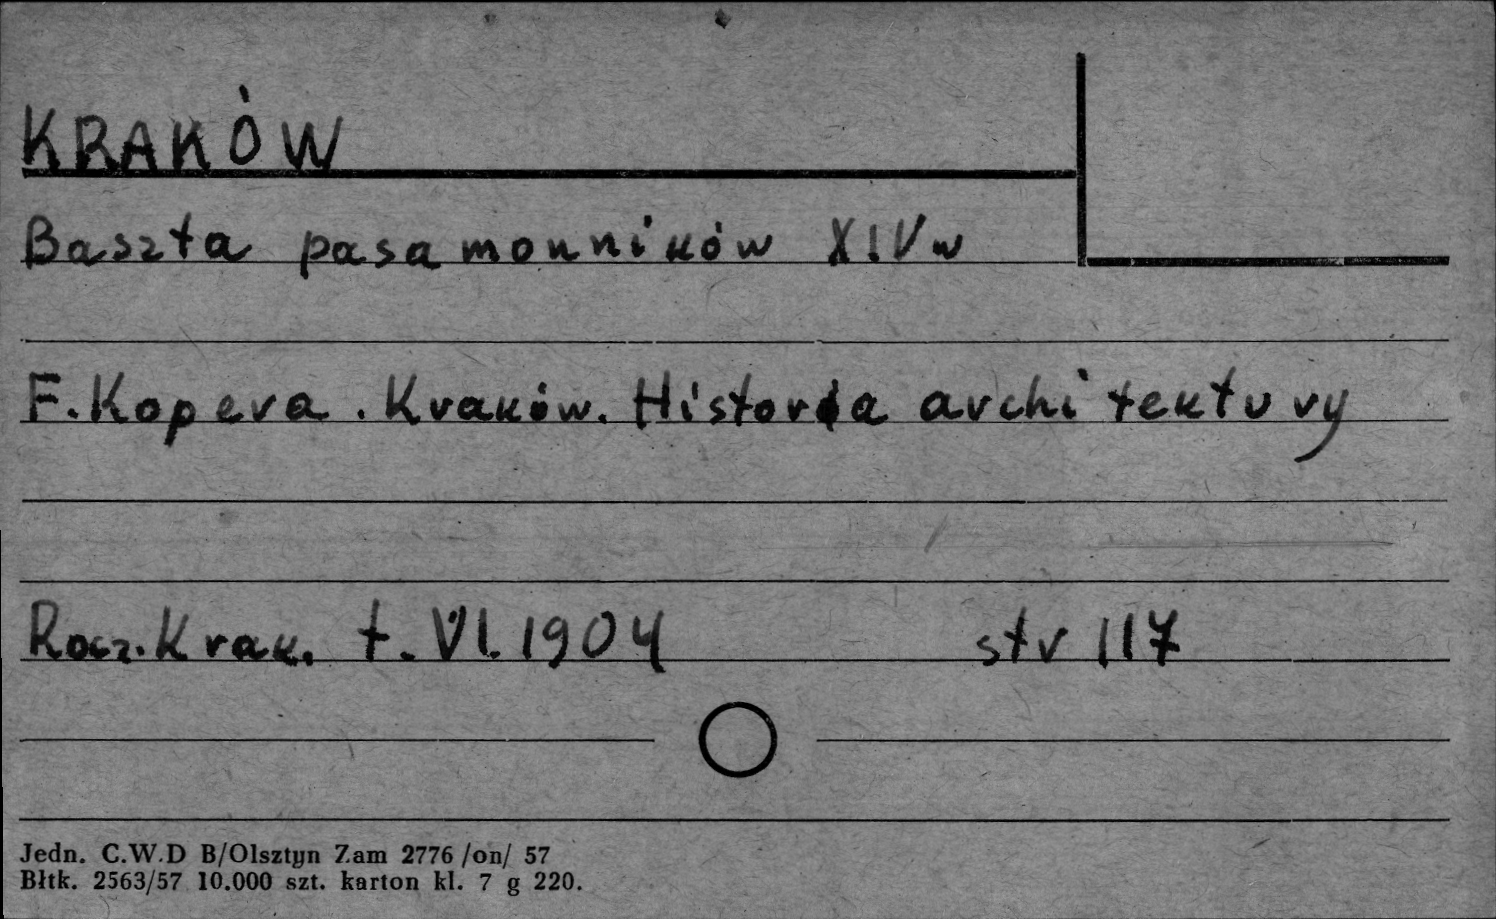 KRAKÓW
Baszta pasamonników XIVw
F. Kopera. Kraków. Historia architektury
Rocz. Krak. t. VI. 1904 str 117
Jedn. C.W.D B/Olsztyn Zam 2776 /on/ 57
Błtk. 2563/57 10.000 szt. karton kl. 7 g 220.